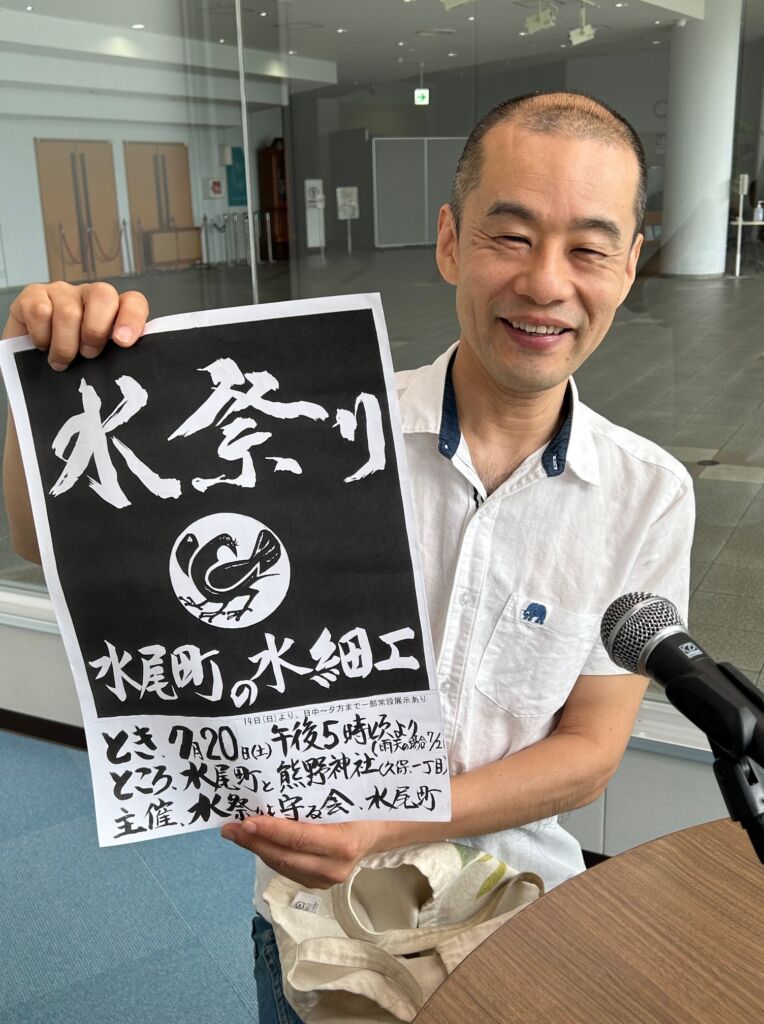 水祭り
水尾町の水細工
14日(日)より、日中〜夕方まで一部常設展示あり
とき、7月20日(土)午後5時頃より
(雨天の場合7/2
ところ、水尾町と熊野神社(久保一丁目)
主催、水祭りを守る会、水尾町